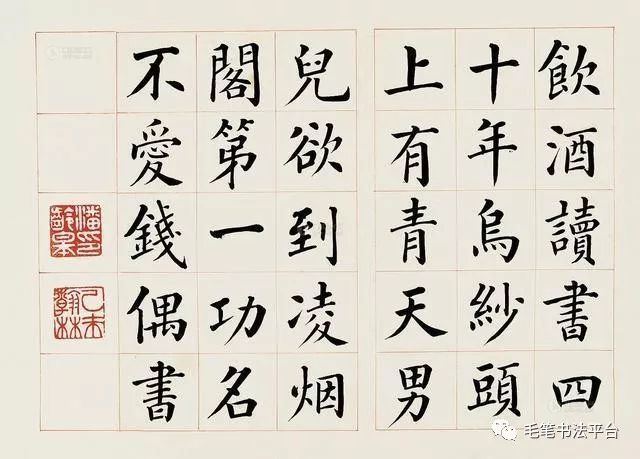 飲酒讀書四
十年烏紗頭
上有青天男
兒欲到凌烟
閣第一功名
不愛錢偶書
潘齡皋印
己未翰林
毛笔书法平台